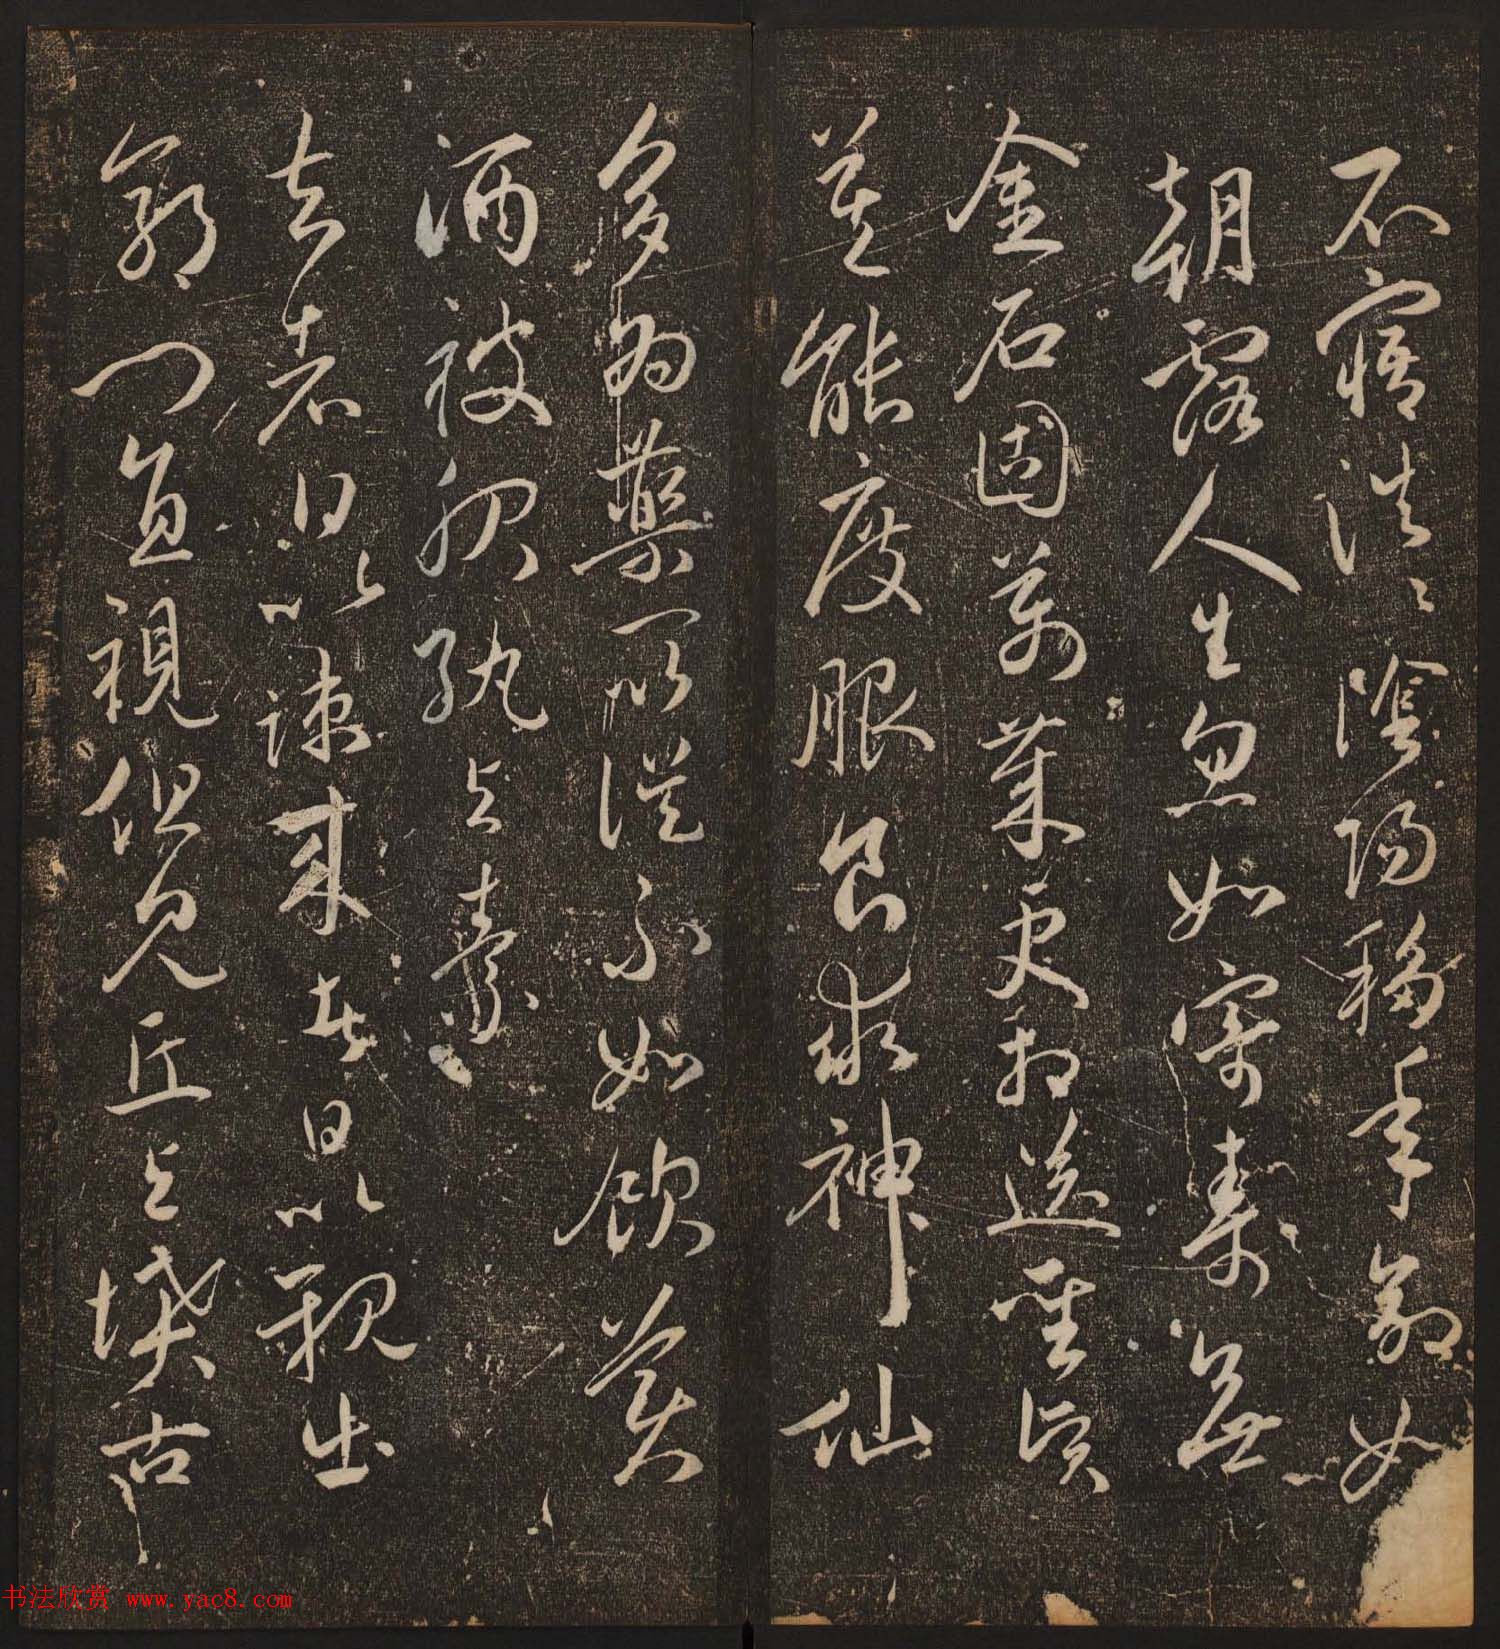 不寤浩浩陰陽移年命如
朝露人生忽如寄壽無
金石固萬歲更相送聖賢
莫能度服食求神仙
多為藥所誤不如飲美
酒被服紈與素
去者日以疎来者日以親出
郭門直視但見丘與墳古
书法欣赏 www.yac8.com